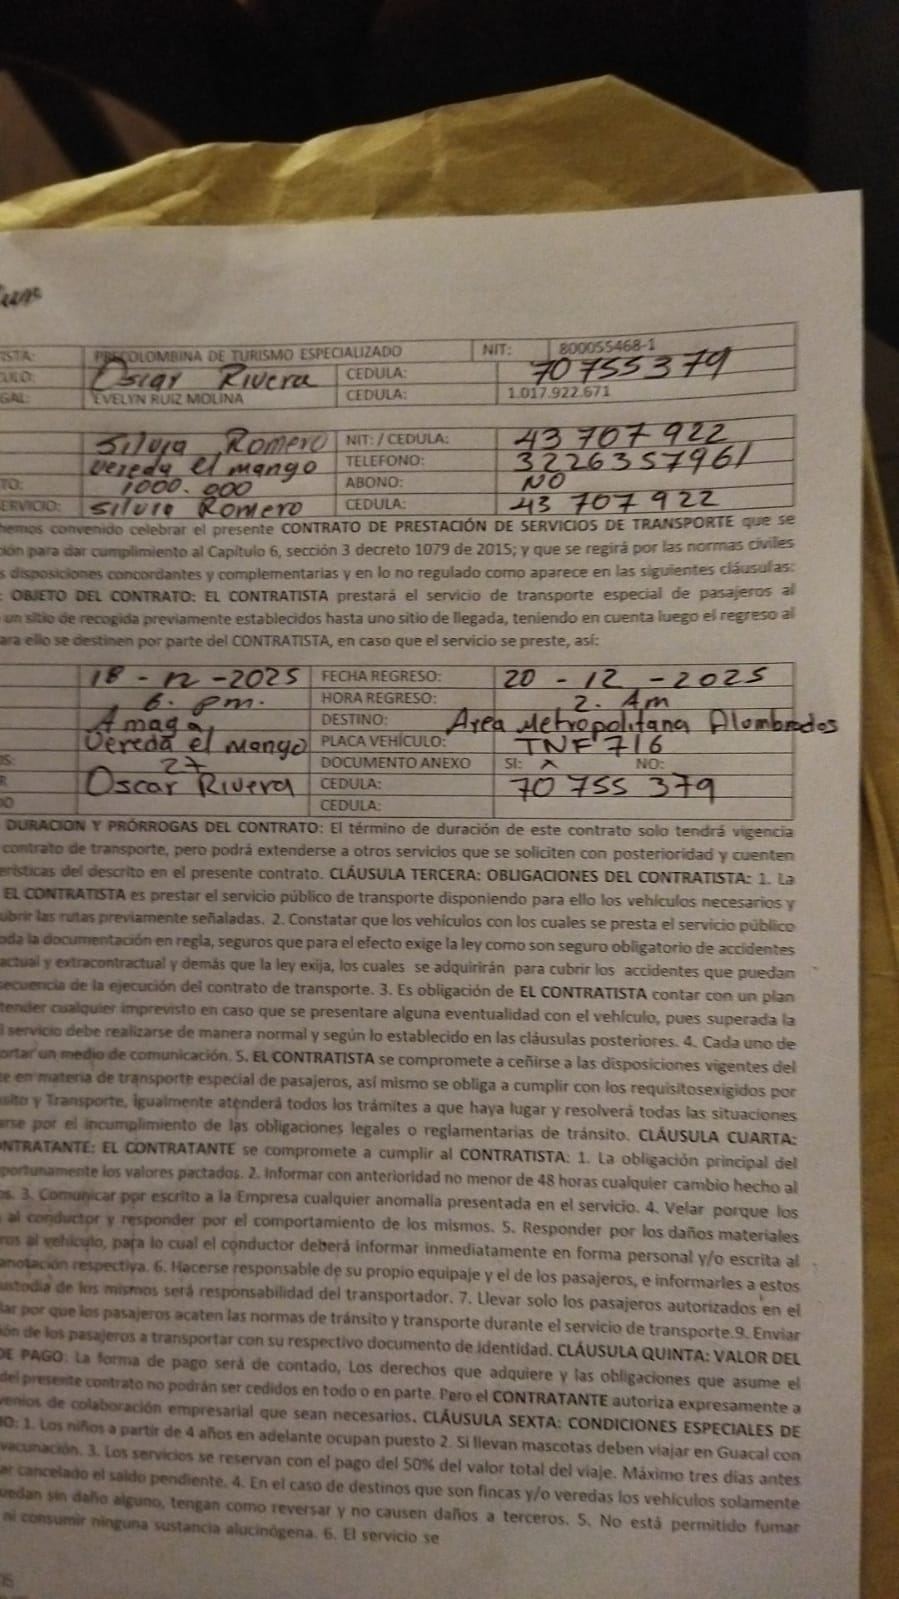 ISTA: PRECOLOMBINA DE TURISMO ESPECIALIZADO NIT: 800055468-1
CULO: Oscar Rivera CEDULA: 70755379
GAL: EVELYN RUIZ MOLINA CEDULA: 1.017.922.671
Silvia Romero NIT: / CEDULA: 43 707 922
Vereda el mango TELEFONO: 3226357961
TO: 1000.000 ABONO: NO
ERVICIO: Silvia Romero CEDULA: 43 707 922
hemos convenido celebrar el presente CONTRATO DE PRESTACIÓN DE SERVICIOS DE TRANSPORTE que se
ción para dar cumplimiento al Capítulo 6, sección 3 decreto 1079 de 2015; y que se regirá por las normas civiles
s disposiciones concordantes y complementarias y en lo no regulado como aparece en las siguientes cláusulas:
: OBJETO DEL CONTRATO: EL CONTRATISTA prestará el servicio de transporte especial de pasajeros al
un sitio de recogida previamente establecidos hasta uno sitio de llegada, teniendo en cuenta luego el regreso al
ara ello se destinen por parte del CONTRATISTA, en caso que el servicio se preste, así:
18 - 12 - 2025 FECHA REGRESO: 20 - 12 - 2025
6. pm. HORA REGRESO: 2. Am
Amaga DESTINO: Area Metropolitana Alumbrados
Vereda el Mango PLACA VEHÍCULO: TNF 716
OS: 27 DOCUMENTO ANEXO SI: X NO:
R Oscar Rivera CEDULA: 70 755 379
DO CEDULA:
DURACION Y PRÓRROGAS DEL CONTRATO: El término de duración de este contrato solo tendrá vigencia
contrato de transporte, pero podrá extenderse a otros servicios que se soliciten con posterioridad y cuenten
erísticas del descrito en el presente contrato. CLÁUSULA TERCERA: OBLIGACIONES DEL CONTRATISTA: 1. La
EL CONTRATISTA es prestar el servicio público de transporte disponiendo para ello los vehículos necesarios y
ubrir las rutas previamente señaladas. 2. Constatar que los vehículos con los cuales se presta el servicio público
oda la documentación en regla, seguros que para el efecto exige la ley como son seguro obligatorio de accidentes
actual y extracontractual y demás que la ley exija, los cuales se adquirirán para cubrir los accidentes que puedan
secuencia de la ejecución del contrato de transporte. 3. Es obligación de EL CONTRATISTA contar con un plan
tender cualquier imprevisto en caso que se presentare alguna eventualidad con el vehículo, pues superada la
l servicio debe realizarse de manera normal y según lo establecido en las cláusulas posteriores. 4. Cada uno de
ortar un medio de comunicación. 5. EL CONTRATISTA se compromete a ceñirse a las disposiciones vigentes del
te en materia de transporte especial de pasajeros, así mismo se obliga a cumplir con los requisitosexigidos por
sito y Transporte, igualmente atenderá todos los trámites a que haya lugar y resolverá todas las situaciones
arse por el incumplimiento de las obligaciones legales o reglamentarias de tránsito. CLÁUSULA CUARTA:
ONTRATANTE: EL CONTRATANTE se compromete a cumplir al CONTRATISTA: 1. La obligación principal del
portunamente los valores pactados. 2. Informar con anterioridad no menor de 48 horas cualquier cambio hecho al
os. 3. Comunicar por escrito a la Empresa cualquier anomalía presentada en el servicio. 4. Velar porque los
al conductor y responder por el comportamiento de los mismos. 5. Responder por los daños materiales
ros al vehículo, para lo cual el conductor deberá informar inmediatamente en forma personal y/o escrita al
anotación respectiva. 6. Hacerse responsable de su propio equipaje y el de los pasajeros, e informarles a estos
ustodia de los mismos será responsabilidad del transportador. 7. Llevar solo los pasajeros autorizados en el
lar por que los pasajeros acaten las normas de tránsito y transporte durante el servicio de transporte.9. Enviar
ión de los pasajeros a transportar con su respectivo documento de identidad. CLÁUSULA QUINTA: VALOR DEL
DE PAGO: La forma de pago será de contado, Los derechos que adquiere y las obligaciones que asume el
del presente contrato no podrán ser cedidos en todo o en parte. Pero el CONTRATANTE autoriza expresamente a
venios de colaboración empresarial que sean necesarios. CLÁUSULA SEXTA: CONDICIONES ESPECIALES DE
IO: 1. Los niños a partir de 4 años en adelante ocupan puesto 2. Si llevan mascotas deben viajar en Guacal con
vacunación. 3. Los servicios se reservan con el pago del 50% del valor total del viaje. Máximo tres días antes
ar cancelado el saldo pendiente. 4. En el caso de destinos que son fincas y/o veredas los vehículos solamente
uedan sin daño alguno, tengan como reversar y no causen daños a terceros. 5. No está permitido fumar
ni consumir ninguna sustancia alucinógena. 6. El servicio se